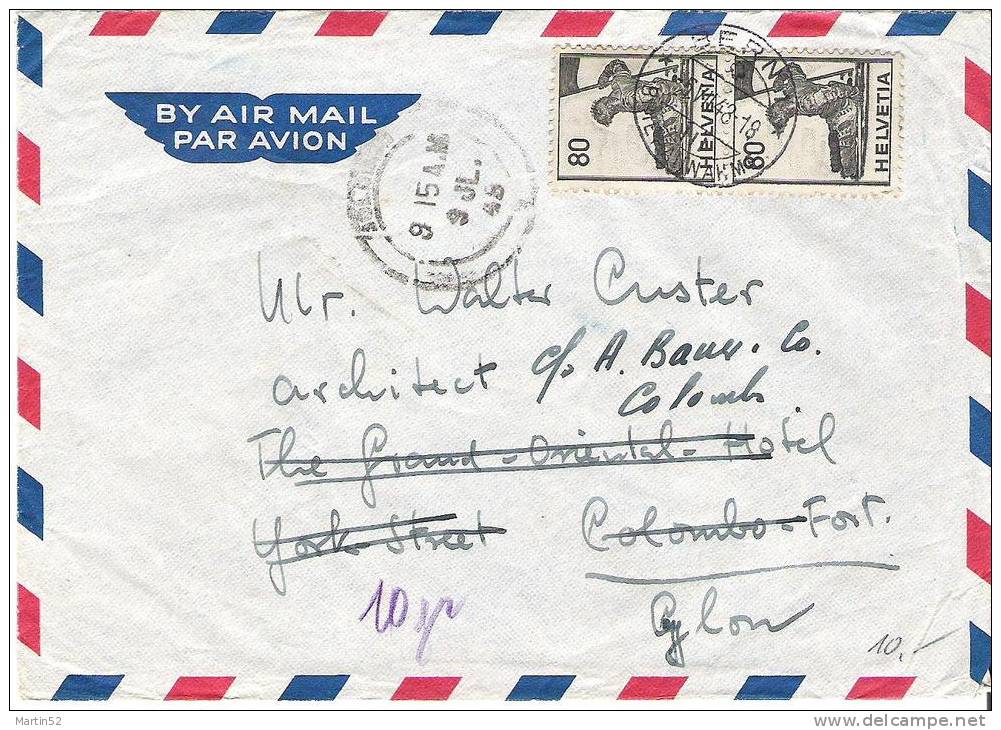 BY AIR MAIL
PAR AVION
9 15 A.M
9 JL.
45
80 HELVETIA
80 HELVETIA
BERN
-18
Mr. Walter Custer
architect c/o A. Baur. Co.
Colombo.
The Grand-Oriental-Hotel
York-Street Colombo-Fort.
Ceylon
10 gr
10.-
Martin52
www.delcampe.net